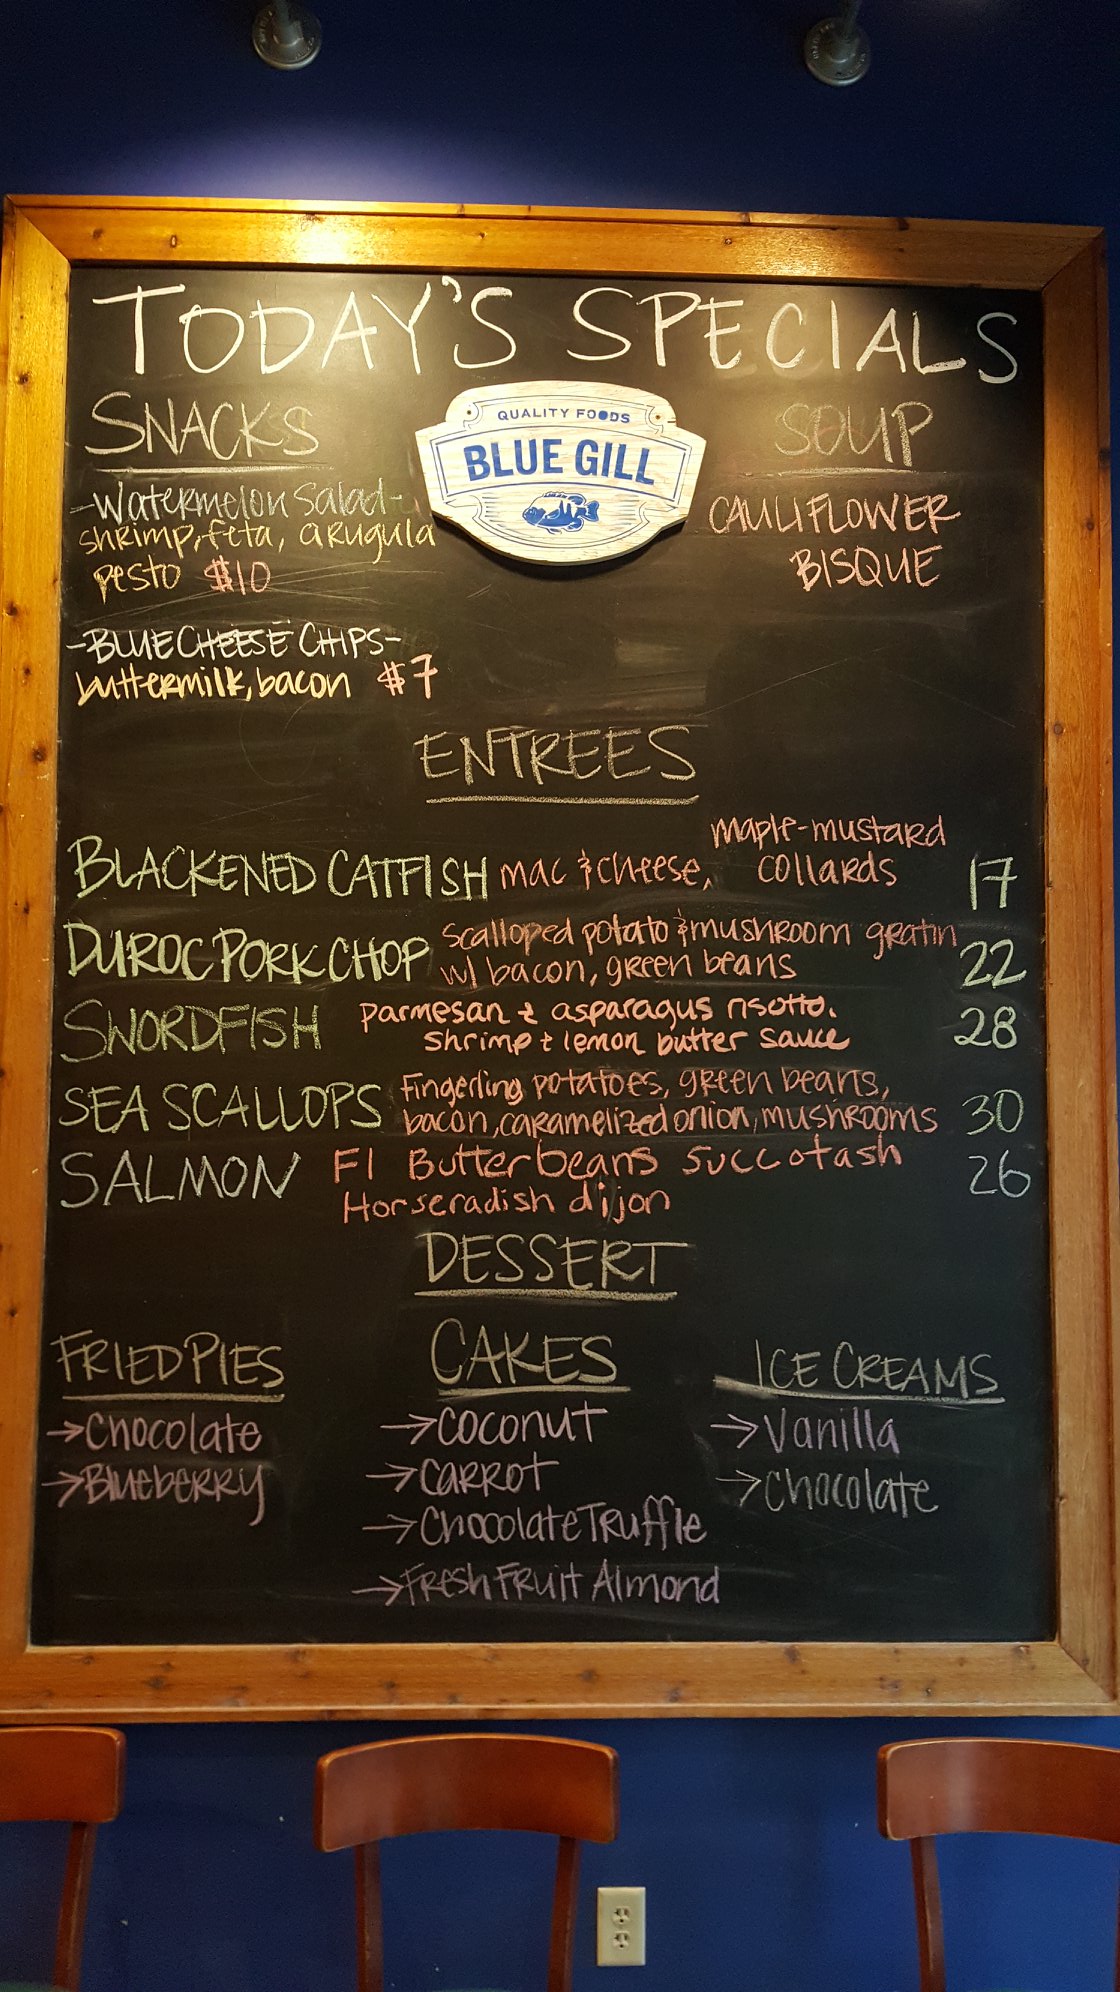 TODAY'S SPECIALS
QUALITY FOODS
BLUE GILL
SNACKS
-Watermelon Salad-
shrimp, feta, arugula
pesto $10
-BLUE CHEESE CHIPS-
buttermilk, bacon $7
SOUP
CAULIFLOWER
BISQUE
ENTREES
BLACKENED CATFISH mac & cheese, maple-mustard
collards 17
DUROC PORK CHOP scalloped potato & mushroom gratin
w/ bacon, green beans 22
SWORDFISH parmesan + asparagus risotto.
shrimp + lemon butter sauce 28
SEA SCALLOPS fingerling potatoes, green beans,
bacon, caramelized onion, mushrooms 30
SALMON Fl Butter beans succotash
Horseradish dijon 26
DESSERT
FRIED PIES
→Chocolate
→Blueberry
CAKES
→Coconut
→Carrot
→Chocolate Truffle
→Fresh Fruit Almond
ICE CREAMS
→Vanilla
→Chocolate